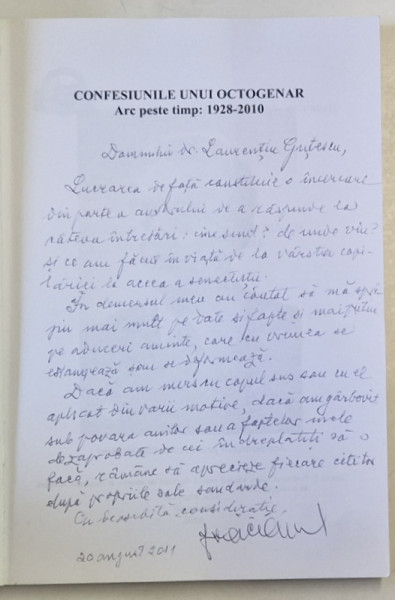 CONFESIUNILE UNUI OCTOGENAR
Arc peste timp: 1928-2010
Domnului dr. Laurențiu
Lucrarea de față constituie o încercare
din parte a autorului de a răspunde la
câteva întrebări: cine sunt? de unde viu?
și ce am făcut în viață de la vârsta copi-
lăriei la aceea a senectuții.
În demersul meu am căutat să mă spri-
jin mai mult pe date și fapte și mai puțin
pe aduceri aminte, care cu vremea se
estompează sau se deformează.
Dacă am mers cu capul sus sau cu el
aplecat din varii motive, dacă am gârbovit
sub povara anilor sau a faptelor mele
dezaprobate de cei îndreptățiți să o
facă, rămâne să aprecieze fiecare cititor
după propriile sale standarde.
Cu deosebită considerație,
20 august 2011